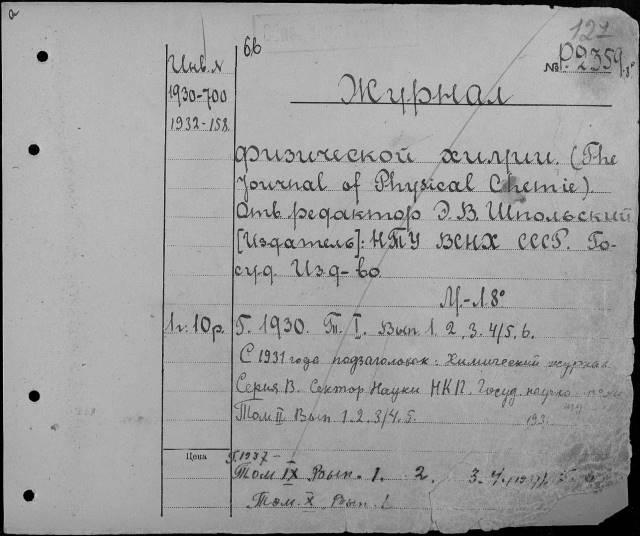 a
66
121
Инв. N
№ Р.2359.8°
1930-700
Журнал
1932-158
физической химии. (The
Journal of Physical Chemie).
Отв. редактор Э. В. Шпольский
[Издатель]: НТУ ВСНХ СССР. Го-
суд. Изд-во
М.-Л. 8°
1 г. 10 р.
Г. 1930. Т. I. Вып. 1. 2. 3. 4/5. 6.
С 1931 года подзаголовок: Химический журнал
Серия В. Сектор Науки НКП. Госуд. научно-техн.
Том II Вып. 1. 2. 3/4. 5. 193
Цена
Г. 1937 -
Том IX Вып. 1. 2. 3. 4.
Том. X Вып. 1